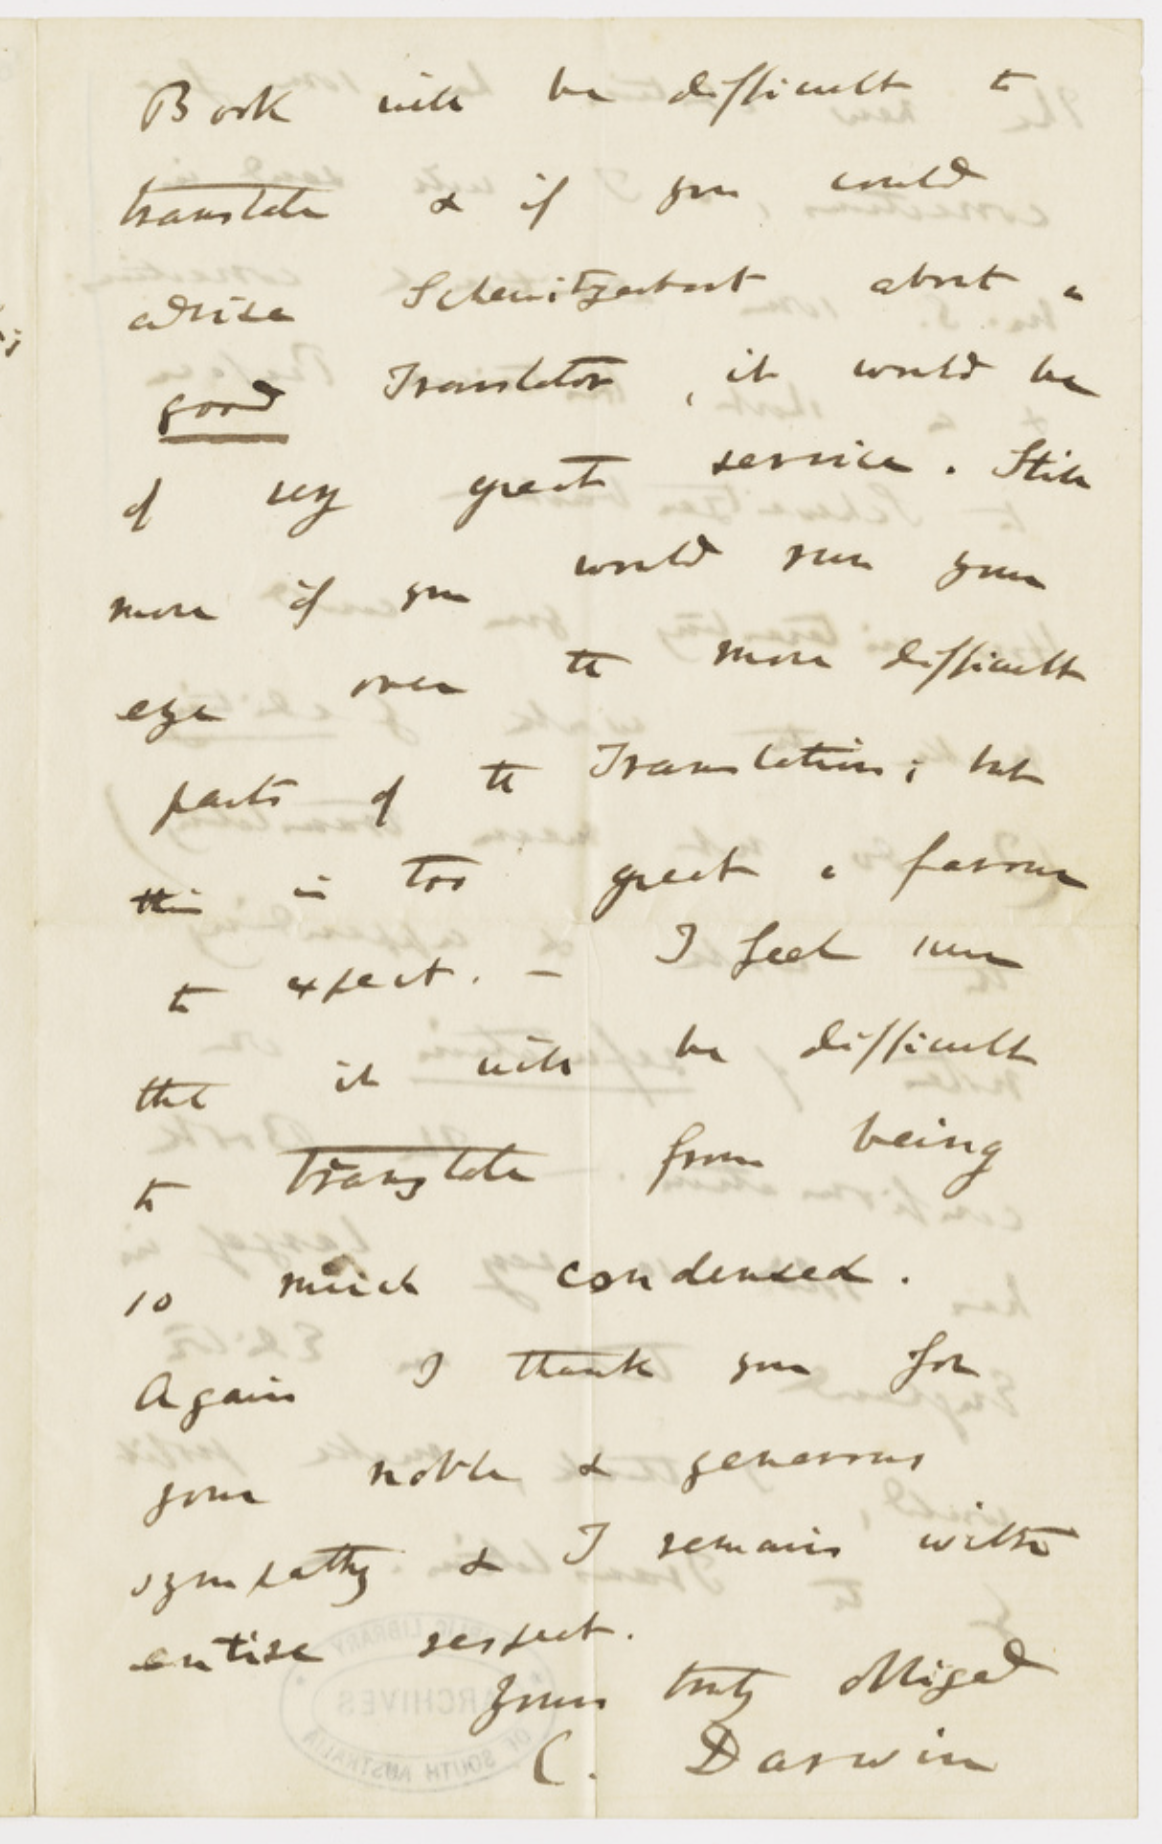 Book will be difficult to
translate & if you could
advise Schweitzerbart about a
good Translator, it would be
of very great service. Still
more if you would run your
eye over the more difficult
parts of the Translation; but
this is too great a favour
to expect. — I feel sure
that it will be difficult
to translate from being
so much condensed.
Again I thank you for
your noble & generous
sympathy & I remain with
entire respect.
Yours truly obliged
C. Darwin
PUBLIC LIBRARY
ARCHIVES
OF SOUTH AUSTRALIA